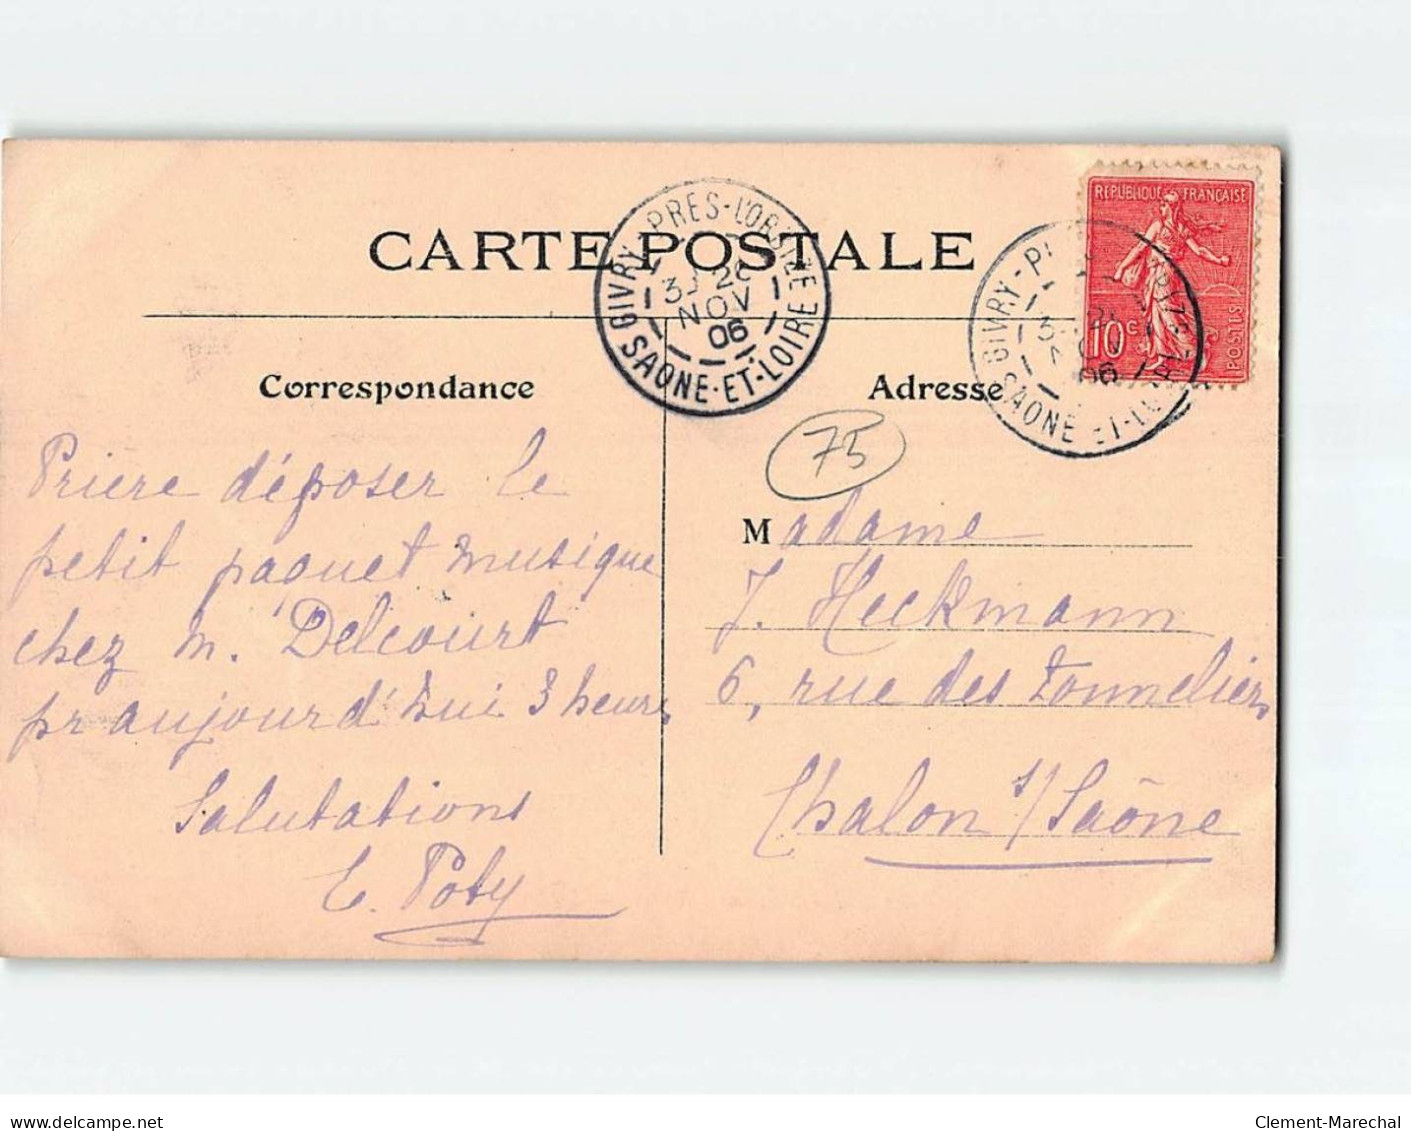 CARTE POSTALE
GIVRY-PRES-L'ORBIZE
NOV
06
SAONE-ET-LOIRE
REPUBLIQUE FRANÇAISE
10c
POSTES
GIVRY-P
06
SAONE ET-L
Correspondance
Adresse
75
Priere déposer le
petit paquet musique
chez M. Delcourt
pr aujourd'hui 3 heures
Salutations
E. Poty
Madame
J. Heckmann
6, rue des Tonneliers
Chalon s/Saône
delcampe.net
Clement-Marechal